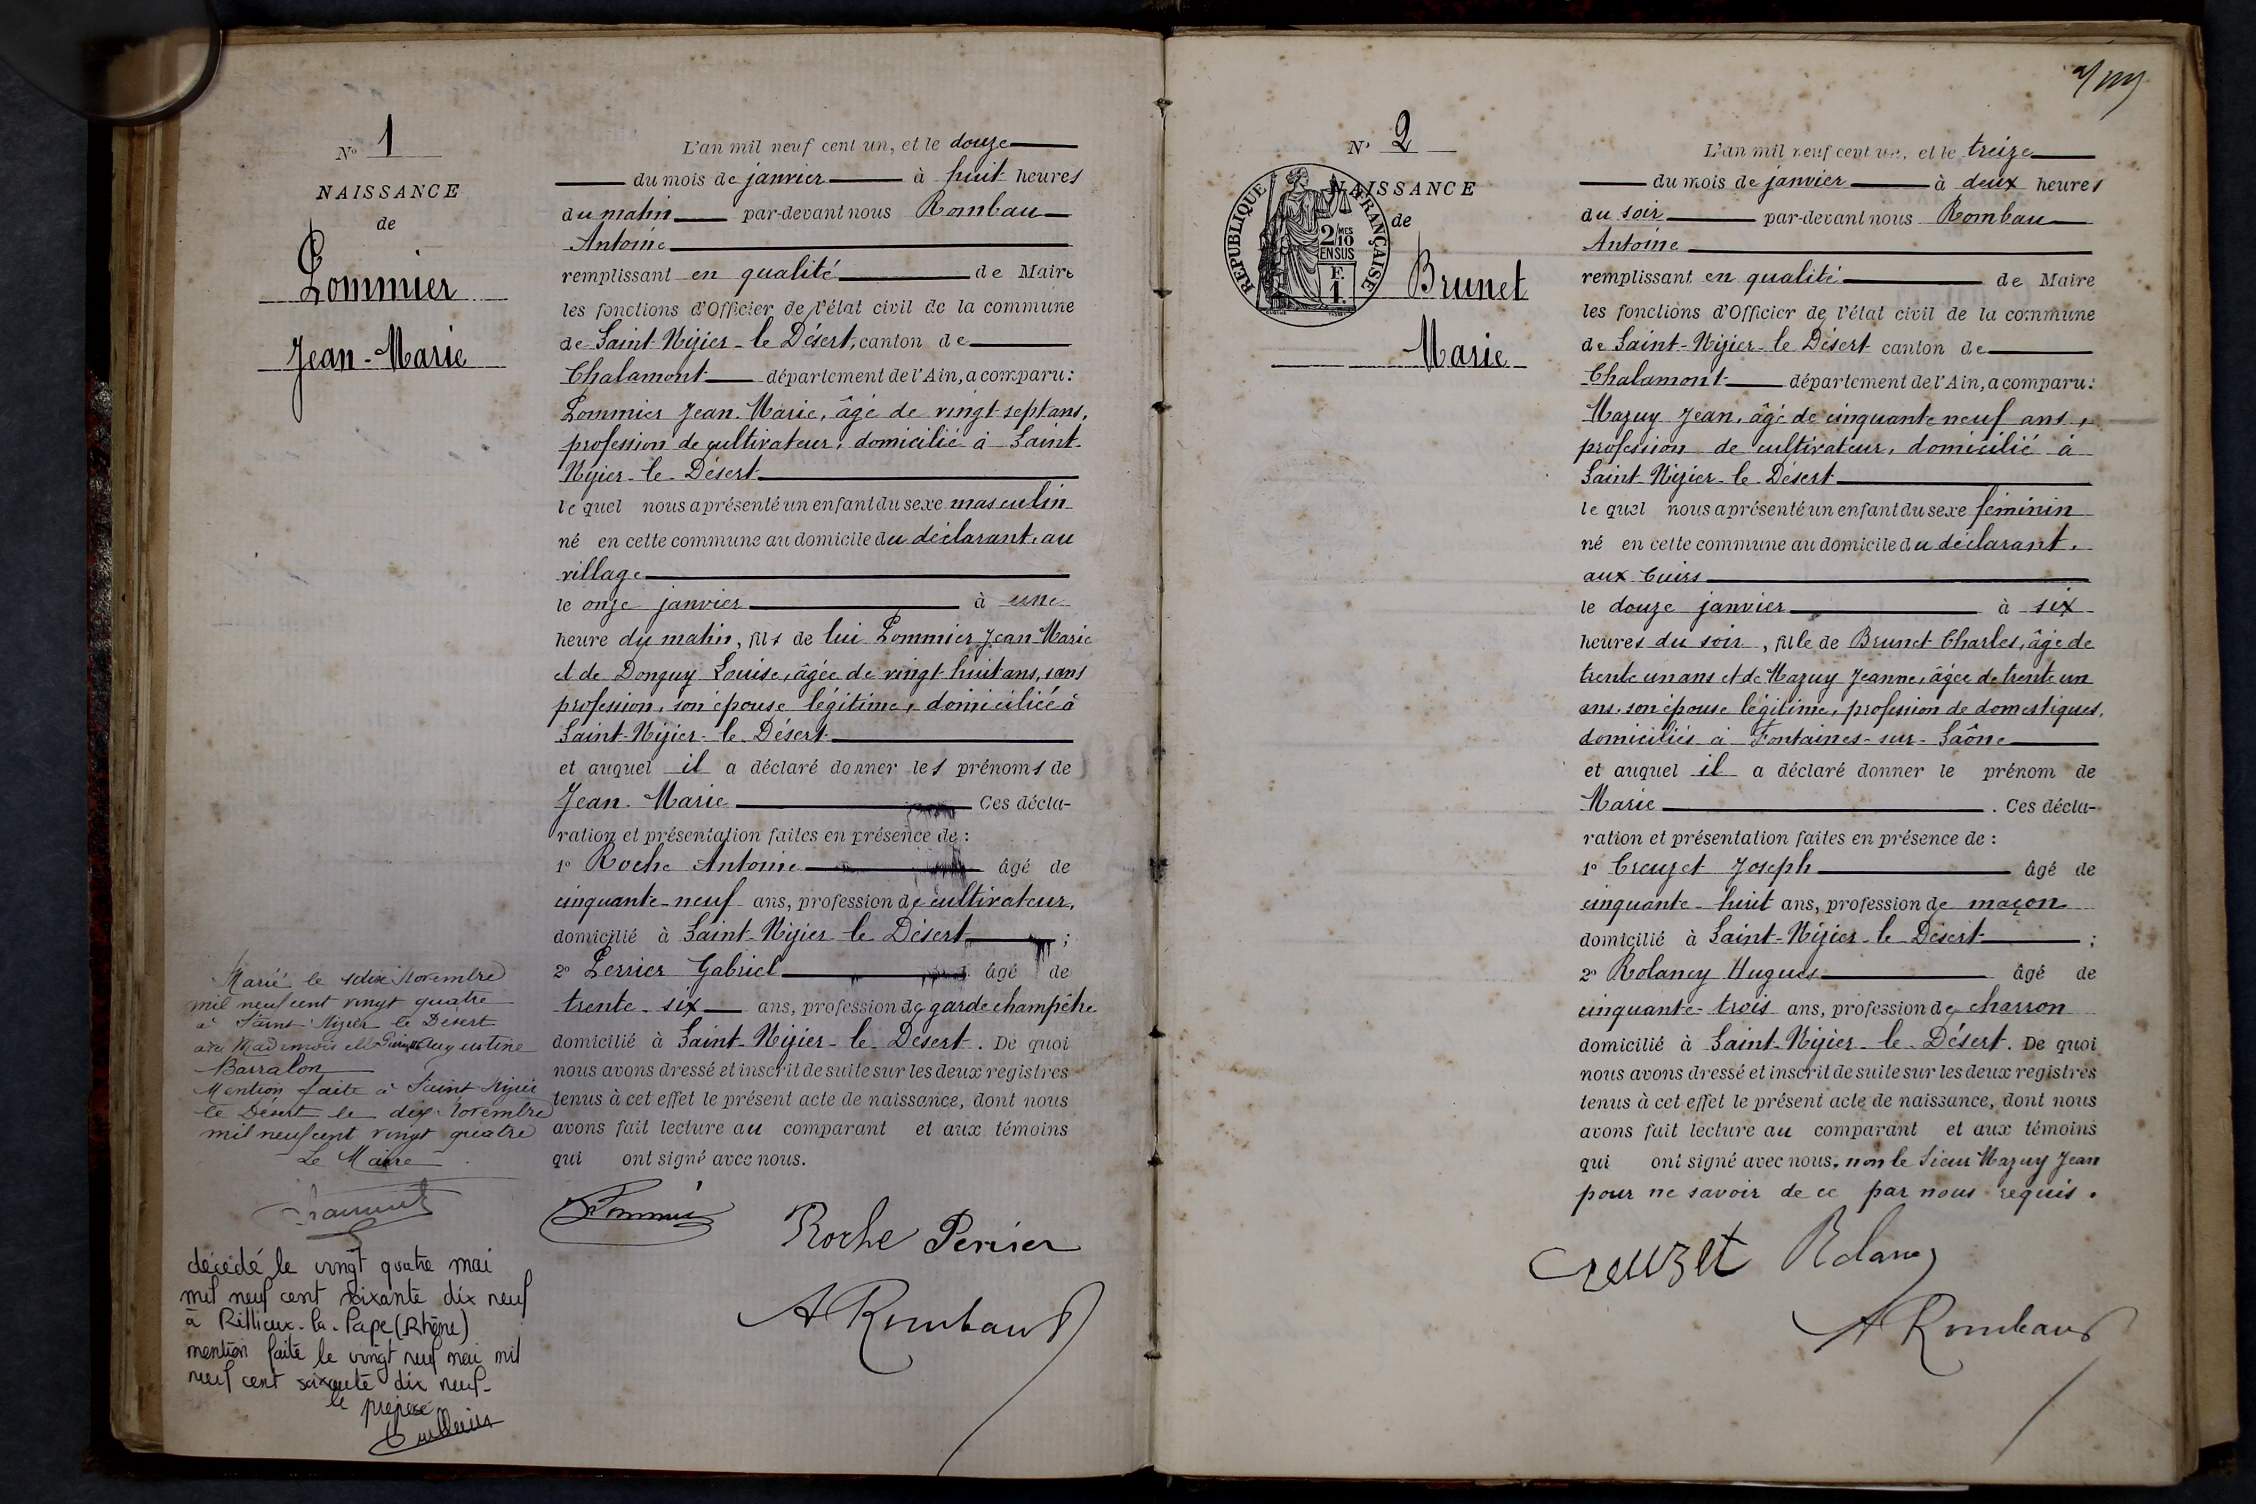 N° 1
NAISSANCE
de
Pommier
Jean-Marie
L'an mil neuf cent un, et le douze
du mois de janvier à huit heures
du matin par-devant nous Rombau
Antoine
remplissant en qualité de Maire
les fonctions d'Officier de l'état civil de la commune
de Saint-Nizier-le Désert, canton de
Chalamont département de l'Ain, a comparu :
Pommier Jean-Marie, âgé de vingt-sept ans,
profession de cultivateur, domicilié à Saint-
Nizier-le-Désert
le quel nous a présenté un enfant du sexe masculin
né en cette commune au domicile du déclarant, au
village
le onze janvier à une
heure du matin, fils de lui Pommier Jean Marie
et de Donguy Louise, âgée de vingt-huit ans, sans
profession, son épouse légitime, domiciliée à
Saint-Nizier-le-Désert
et auquel il a déclaré donner les prénoms de
Jean-Marie Ces décla-
ration et présentation faites en présence de :
1° Roche Antoine âgé de
cinquante-neuf ans, profession de cultivateur,
domicilié à Saint-Nizier le Désert ;
2° Perrier Gabriel âgé de
trente-six ans, profession de garde champêtre
domicilié à Saint-Nizier-le-Désert. De quoi
nous avons dressé et inscrit de suite sur les deux registres
tenus à cet effet le présent acte de naissance, dont nous
avons fait lecture au comparant et aux témoins
qui ont signé avec nous.
Pommier
Roche Perrier
A Rombaud
Marié le dix Novembre
mil neuf cent vingt quatre
à Saint Nizier le Désert
avec Mademoiselle Augustine
Barralon
Mention faite à Saint Nizier
le Désert le dix Novembre
mil neuf cent vingt quatre
Le Maire
décédé le vingt quatre mai
mil neuf cent soixante dix neuf
à Rillieux-la-Pape (Rhône)
mention faite le vingt neuf mai mil
neuf cent soixante dix neuf-
le préposé
N° 2
NAISSANCE
de
REPUBLIQUE FRANÇAISE
2/10 MES
EN SUS
F.
1.
Brunet
Marie
L'an mil neuf cent un, et le treize
du mois de janvier à deux heures
du soir par-devant nous Rombau
Antoine
remplissant en qualité de Maire
les fonctions d'Officier de l'état civil de la commune
de Saint-Nizier-le Désert canton de
Chalamont département de l'Ain, a comparu :
Mazuy Jean, âgé de cinquante neuf ans,
profession de cultivateur, domicilié à
Saint-Nizier-le-Désert
le quel nous a présenté un enfant du sexe féminin
né en cette commune au domicile du déclarant,
aux Cuirs
le douze janvier à six
heures du soir, fille de Brunet Charles, âgé de
trente un ans et de Mazuy Jeanne, âgée de trente un
ans, son épouse légitime, profession de domestiques,
domiciliés à Fontaines-sur-Saône
et auquel il a déclaré donner le prénom de
Marie . Ces décla-
ration et présentation faites en présence de :
1° Creuzet Joseph âgé de
cinquante-huit ans, profession de maçon
domicilié à Saint-Nizier-le Désert ;
2° Rolancy Hugues âgé de
cinquante-trois ans, profession de charron
domicilié à Saint-Nizier-le-Désert. De quoi
nous avons dressé et inscrit de suite sur les deux registres
tenus à cet effet le présent acte de naissance, dont nous
avons fait lecture au comparant et aux témoins
qui ont signé avec nous, non le Sieur Mazuy Jean
pour ne savoir de ce par nous requis.
Creuzet Rolancy
A Rombaud